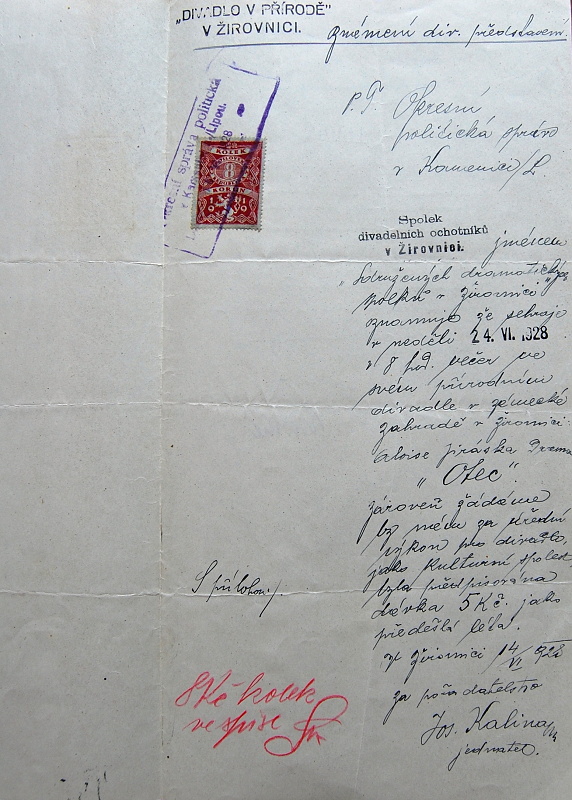 „DIVADLO V PŘÍRODĚ"
V ŽIROVNICI.
známení div. představení
P. T. Okresní
politická správa
v Kamenici/L.
správa politická
Lipou.
28
KOLEK
8
KORUN
1919
Spolek
divadelních ochotníků
v Žirovnici.
jménem
„Sdružených dramatických
spolků v Žirovnici"
oznamuje že sehraje
v neděli 24. VI. 1928
v 8 hod. večer ve
svém přírodním
divadle v zámecké
zahradě v Žirovnici:
Aloise Jiráska Drama
„Otec".
Zároveň žádáme
by nám za úřední
výkon pro divadlo,
jako kulturní spolek
byla předpisována
dávka 5 Kč. jako
předešlá léta.
S přílohou/.
V Žirovnici 14/VI 928
za pořadatelstvo
Jos. Kalina
jednatel.
8 Kč kolek
ve spise